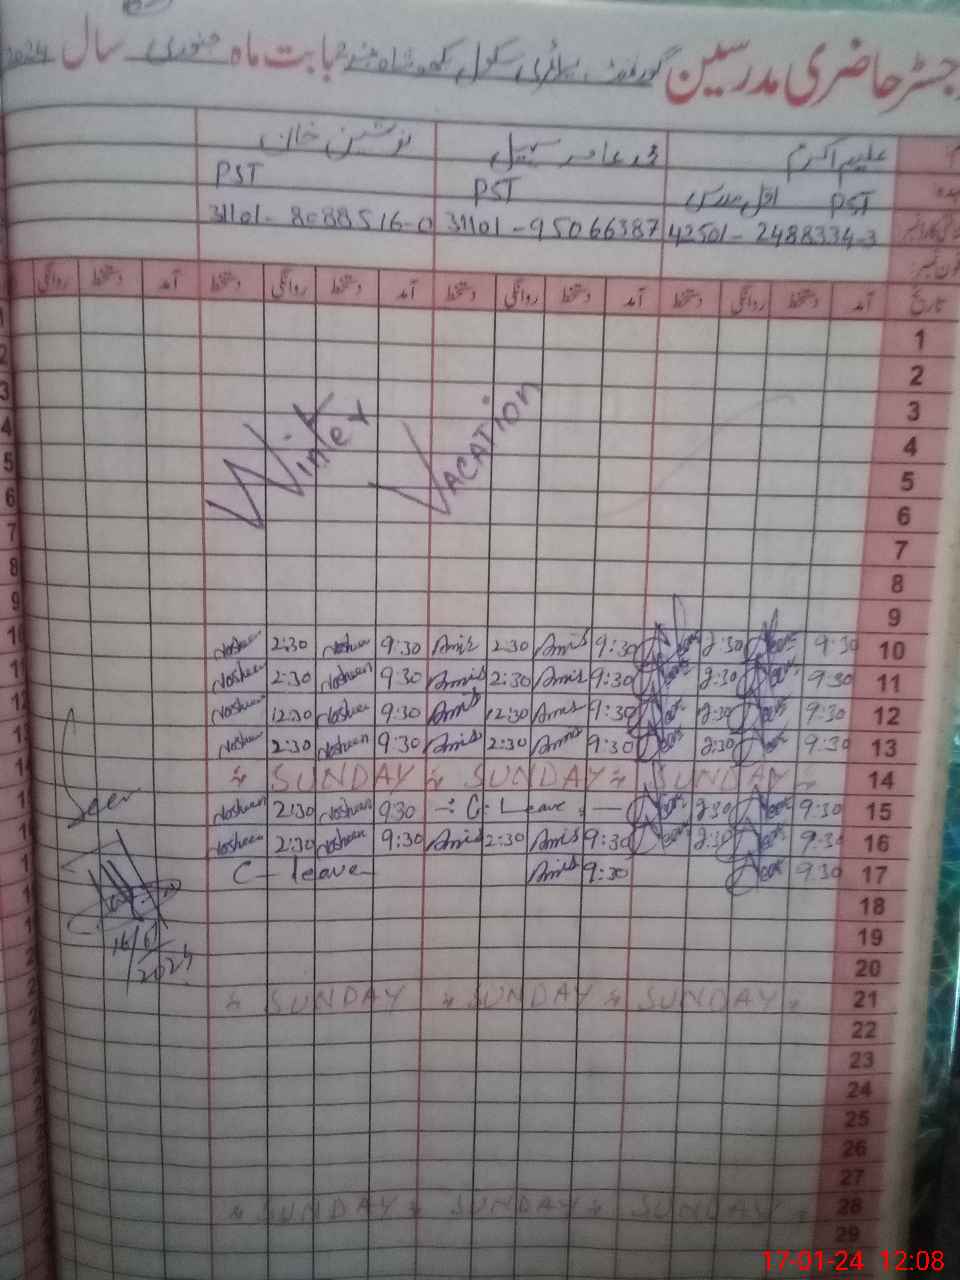 رجسٹر حاضری مدرسین گورنمنٹ پرائمری سکول بابت ماہ جنوری سال 2024
علیم اکرم نوشین خان
PST اول مدرس PST PST
42501-2488334-3 31101-95066387 31101-8088516-0
تاریخ آمد دستخط روانگی دستخط آمد دستخط روانگی دستخط آمد دستخط روانگی دستخط آمد دستخط روانگی
1
2
3
4
5
6
7
8
9
Winter VACATION
Nosheen 2:30 Nosheen 9:30 Amis 2:30 Amis 9:30 2:30 9:30 10
Nosheen 2:30 Nosheen 9:30 Amis 2:30 Amis 9:30 2:30 9:30 11
Nosheen 12:30 Nosheen 9:30 Amis 12:30 Amis 9:30 9:30 12
Nosheen 2:30 Nosheen 9:30 Amis 2:30 Amis 9:30 2:30 9:30 13
SUNDAY SUNDAY SUNDAY 14
Nosheen 2:30 Nosheen 9:30 C-Leave 2:30 9:30 15
Nosheen 2:30 Nosheen 9:30 Amis 2:30 Amis 9:30 2:30 9:30 16
C-leave Amis 9:30 9:30 17
Seen
18
19
20
SUNDAY SUNDAY SUNDAY 21
22
23
24
25
26
27
SUNDAY SUNDAY SUNDAY 28
29
17-01-24 12:08